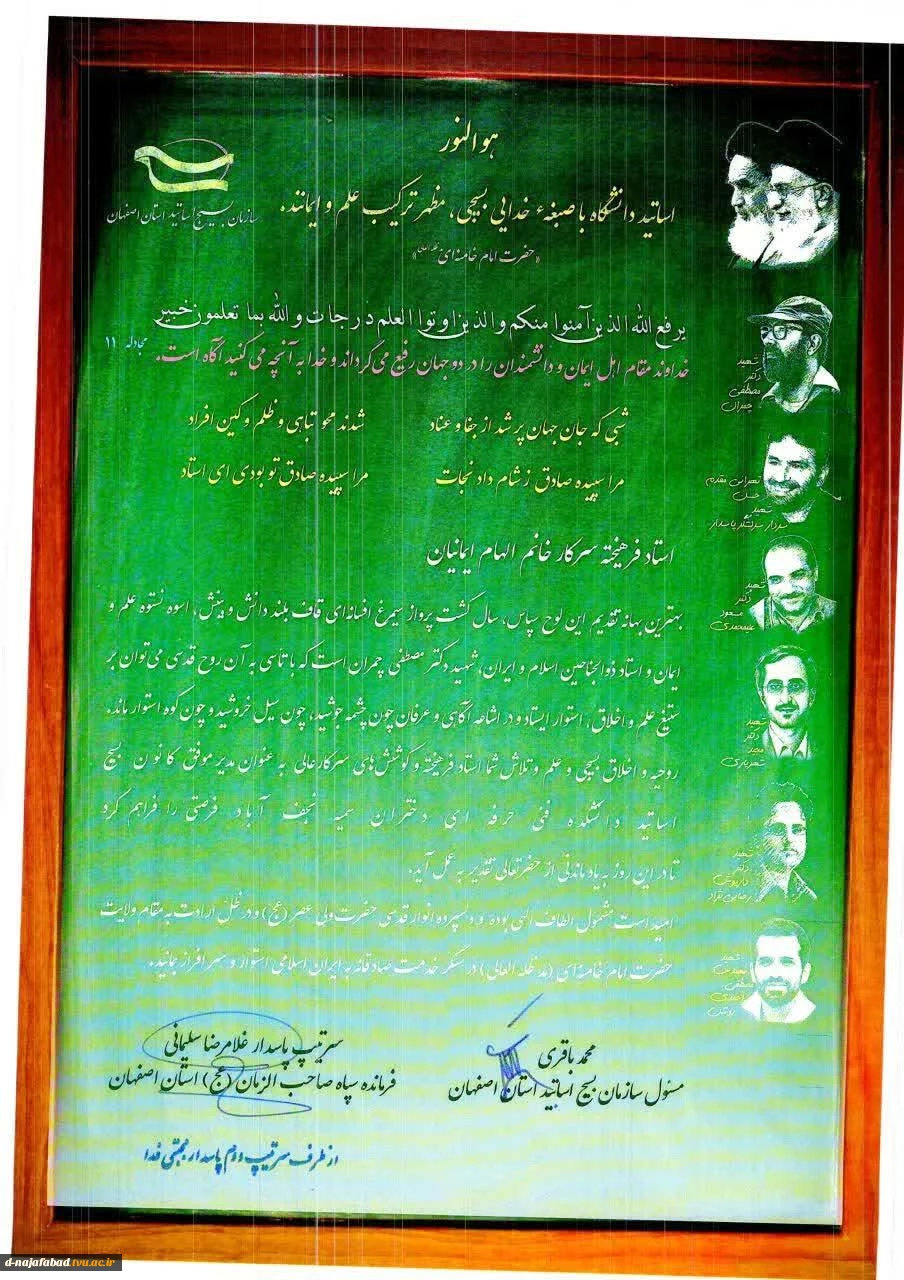 هوالنور
سازمان بسیج اساتید استان اصفهان
اساتید دانشگاه با صبغهٔ خدایی بسیجی، مظهر ترکیب علم و ایمانند.
«حضرت امام خامنه‌ای مدظله‌العالی»
یرفع الله الذین آمنوا منکم والذین اوتوا العلم درجات و الله بما تعلمون خبیر
مجادله ۱۱
خداوند مقام اهل ایمان و دانشمندان را در دو جهان رفیع می‌گرداند و خدا به آنچه می‌کنید آگاه است.
شبی که جان جهان پر شد از جفا و عناد
شدند محو تباهی و ظلم و کین افراد
مرا سپیده صادق ز شام داد نجات
مرا سپیده صادق تو بودی ای استاد
استاد فرهیخته سرکار خانم الهام ایمانیان
بهترین بهانه تقدیم این لوح سپاس، سال گشت پرواز سیمرغ افسانه‌ای قاف بلند دانش و بینش، اسوه نستوه علم و
ایمان و استاد ذوالجناحین اسلام و ایران، شهید دکتر مصطفی چمران است که با تاسی به آن روح قدسی می‌توان بر
ستیغ علم و اخلاق، استوار ایستاد و در اشاعه آگاهی و عرفان چون چشمه جوشید، چون سیل خروشید و چون کوه استوار ماند.
روحیه و اخلاق بسیجی و علم و تلاش شما استاد فرهیخته و کوشش‌های سرکارعالی به عنوان مدیر موفق کانون بسیج
اساتید دانشکده فنی حرفه ای دختران سمیه نجف آباد فرصتی را فراهم کرد
تا در این روز به یاد ماندنی از حضرتعالی تقدیر به عمل آید.
امید است مشمول الطاف الهی بوده و دلسپرده انوار قدسی حضرت ولی عصر (عج) و در ظل ارادت به مقام ولایت
حضرت امام خامنه‌ای (مدظله العالی) در سنگر خدمت صادقانه به ایران اسلامی استوار و سرافراز بمانید.
شهید
دکتر
مصطفی
چمران
تهرانی مقدم
حسن
شهید
سردار سرلشگر پاسدار
شهید
دکتر
مسعود
علیمحمدی
شهید
دکتر
مجید
شهریاری
شهید
دکتر
داریوش
رضایی نژاد
شهید
مصطفی
احمدی
روشن
محمد باقری
مسئول سازمان بسیج اساتید استان اصفهان
سرتیپ پاسدار غلامرضا سلیمانی
فرمانده سپاه صاحب الزمان (عج) استان اصفهان
از طرف سرتیپ دوم پاسدار مجتبی فدا
d-najafabad.tvu.ac.ir